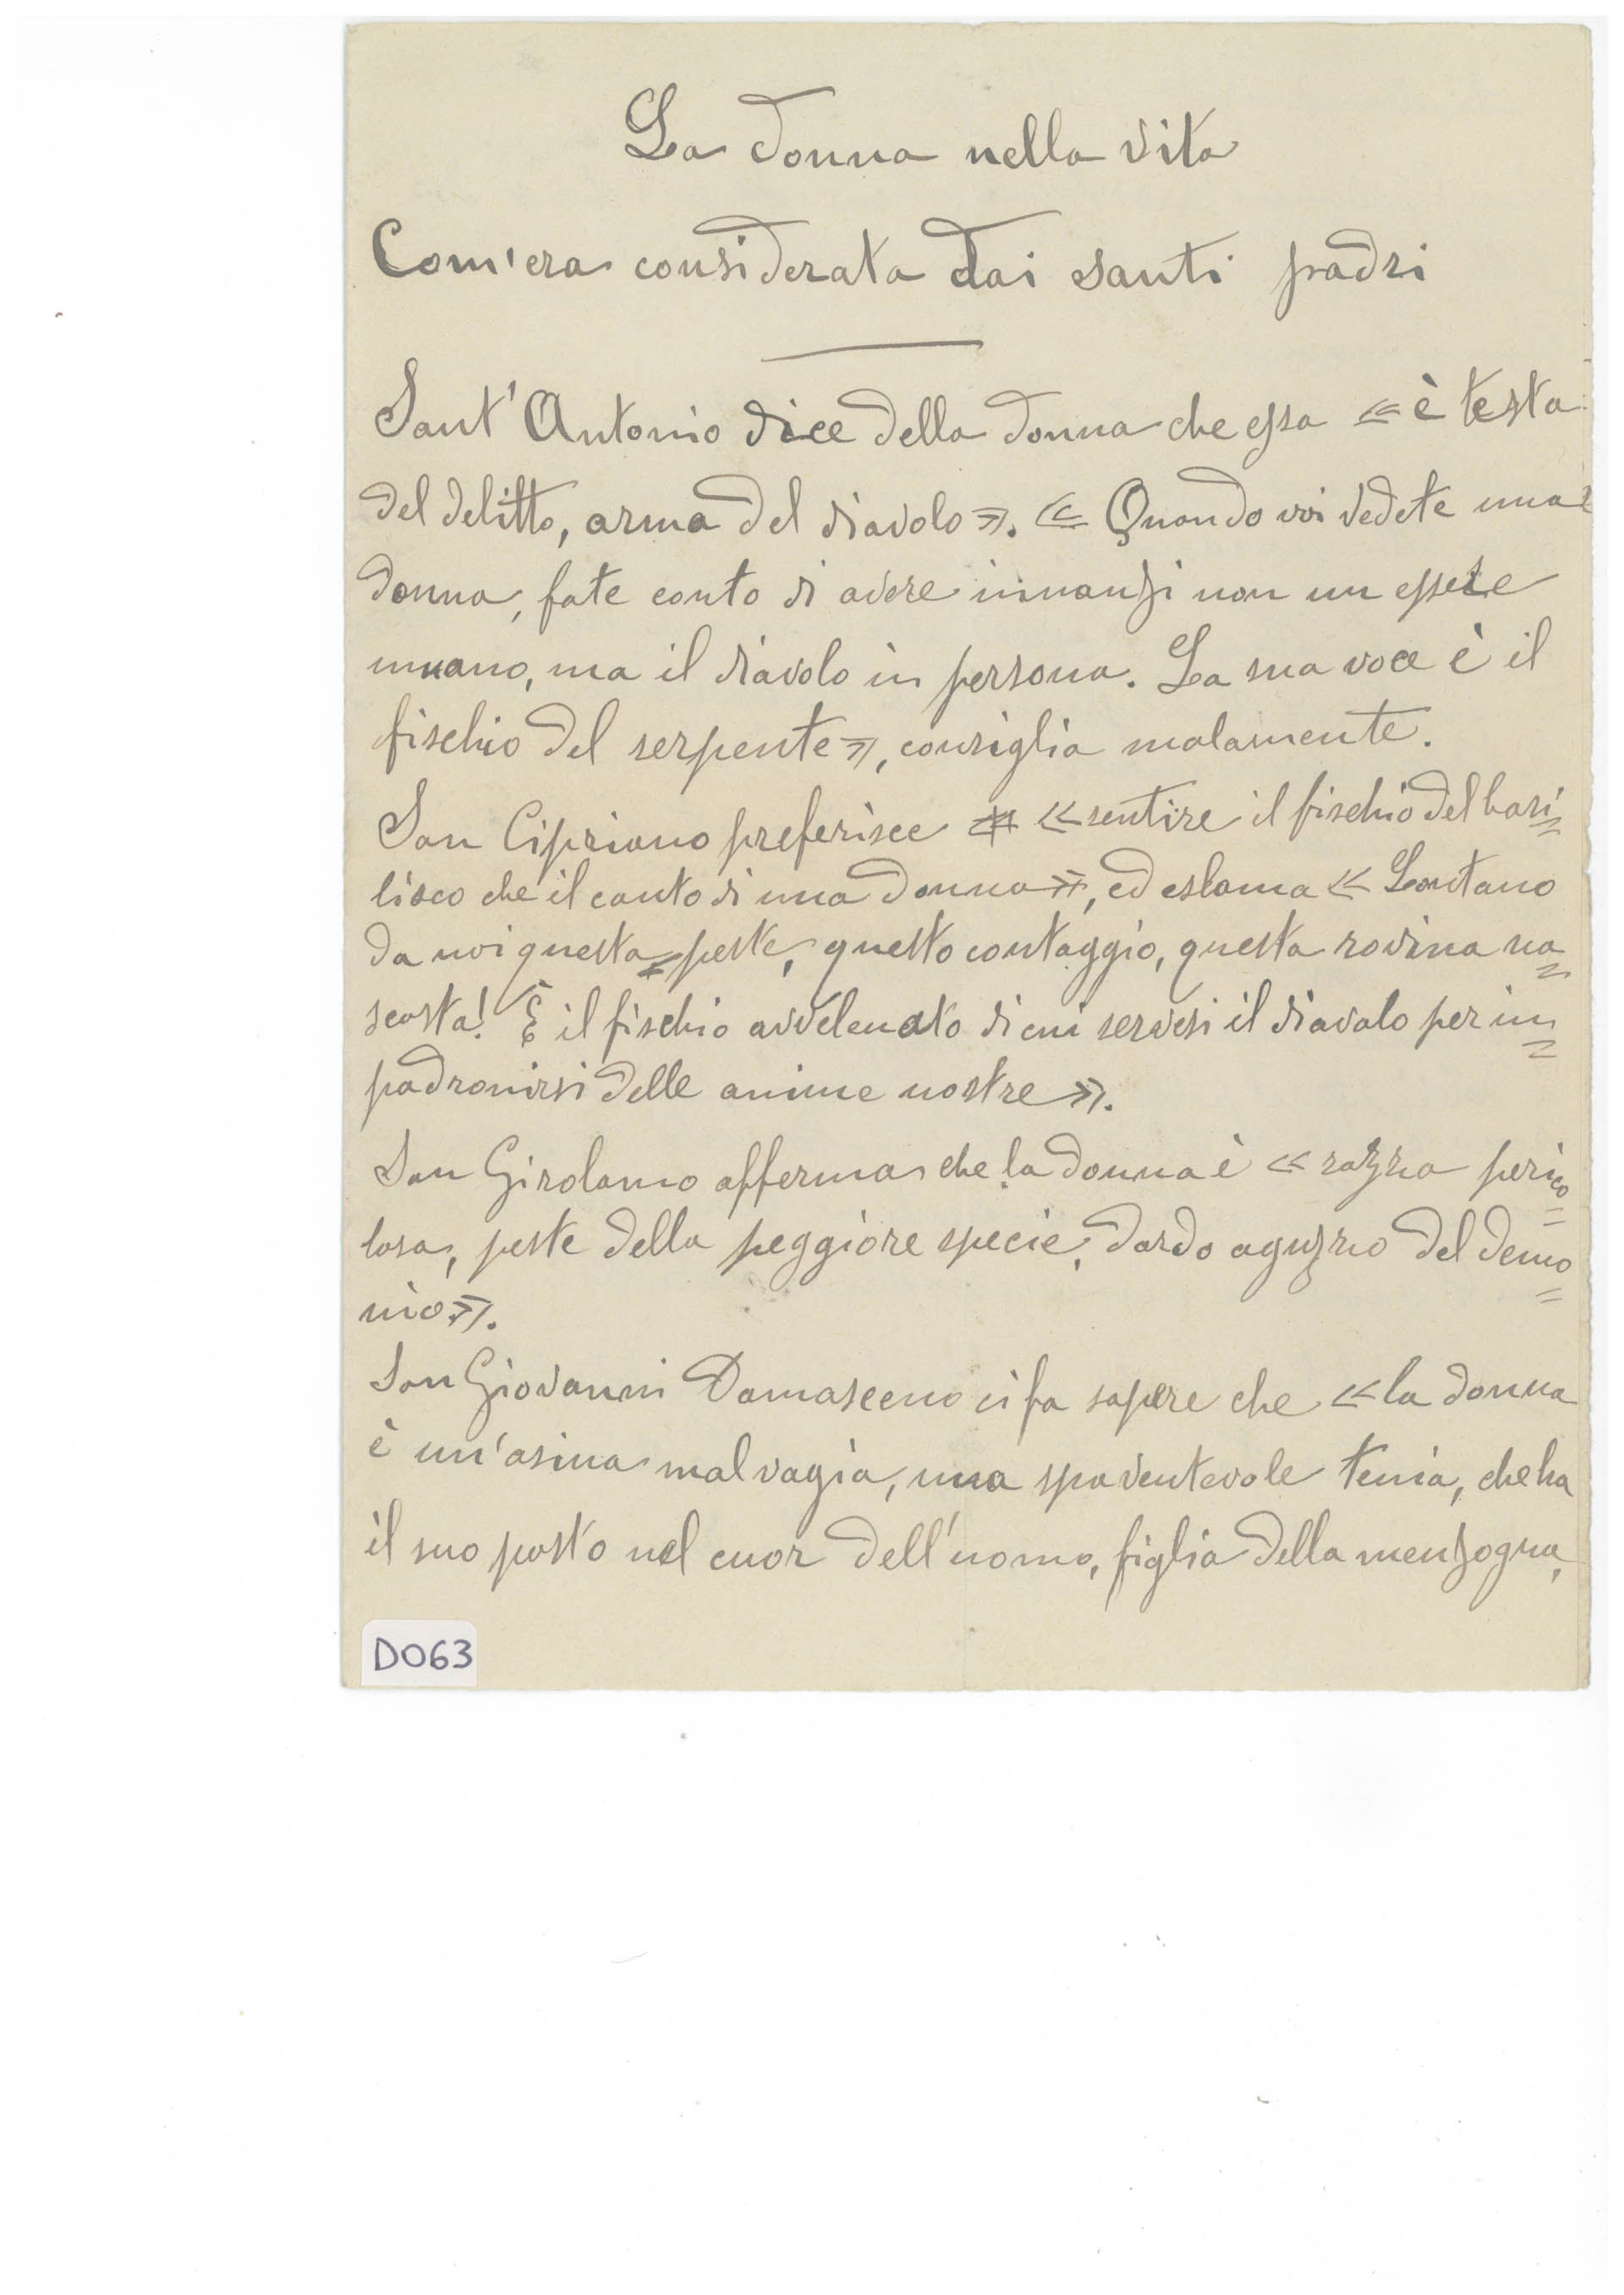 La donna nella vita
Com'era considerata dai santi padri
Sant'Antonio dice della donna che essa « è testa
del delitto, arma del diavolo ». « Quando voi vedete una
donna, fate conto di avere innanzi non un essere
umano, ma il diavolo in persona. La sua voce è il
fischio del serpente », consiglia malamente.
San Cipriano preferisce « sentire il fischio del basi=
lisco che il canto di una donna », ed eslama « Lontano
da noi questa peste, questo contaggio, questa rovina na=
scosta! È il fischio avvelenato di cui servesi il diavolo per im=
padronirsi delle anime nostre ».
San Girolamo afferma che la donna è « razza perico=
losa, peste della peggiore specie, dardo aguzzo del demo=
nio ».
San Giovanni Damasceno ci fa sapere che « la donna
è un'asina malvagia, una spaventevole tenia, che ha
il suo posto nel cuor dell'uomo, figlia della menzogna,
D063